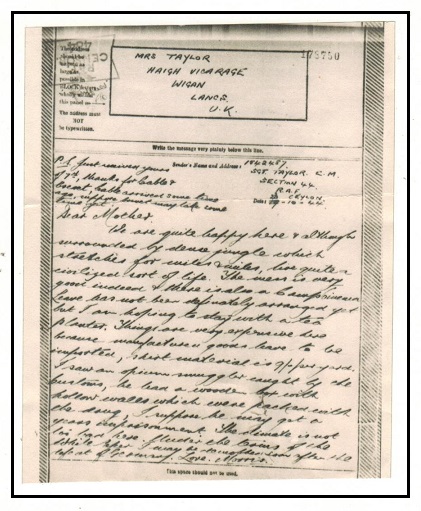 The address
should be
large
possible in
BLOCK letters
wholly within
this panel
The address must
NOT
be typewritten.
MRS TAYLOR
HAIGH VICARAGE
WIGAN
LANCS.
U.K.
179750
Write the message very plainly below this line.
Sender's Name and Address :
1542487
SGT. TAYLOR E. M.
SECTION 44
R.A.F.
CEYLON
Date: -10-44
P.S. Just received yours
of 7th, thanks for cable &
cable arrived some time
suppose may take some
time
Dear Mother,
We are quite happy here & although
surrounded by dense jungle which
stretches for miles & miles, live quite a
civilized sort of life. The mess is very
good indeed & there is also a camp cinema
Leave has not been definately arranged yet
but I am hoping to stay with a tea
planter. Things are very expensive here
because manufactured goods have to be
imported, shirt material is 9/- per yard.
I saw an opium smuggler caught by the
customs, he had a wooden box with
hollow walls which were packed with
the drug, I suppose he may get a
years imprisonment. The climate is not
too bad here,
Love,
This space should not be used.